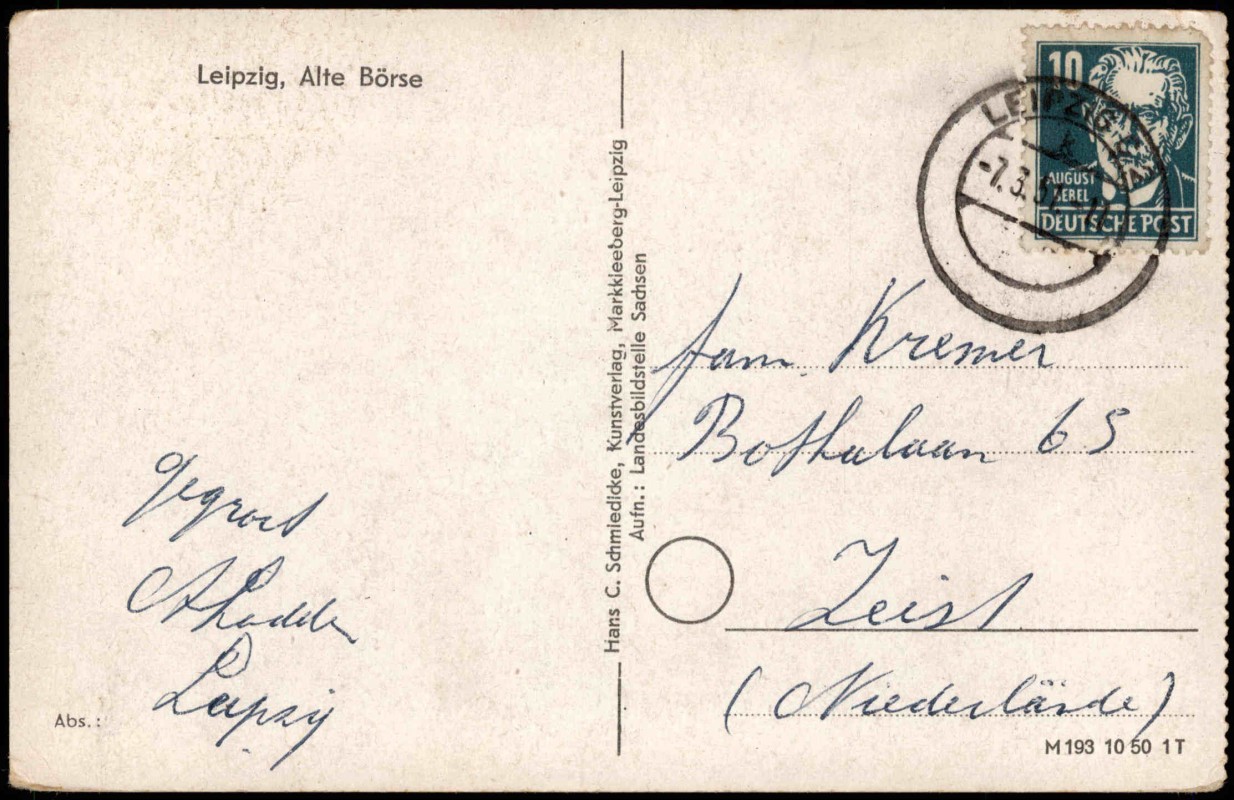 Leipzig, Alte Börse
10
AUGUST
BEBEL
DEUTSCHE POST
LEIPZIG
-7.3.51.-11
Hans C. Schmiedicke, Kunstverlag, Markkleeberg-Leipzig
Aufn.: Landesbildstelle Sachsen
Fam. Kremer
Bothalaan 65
Zeist
(Niederlände)
Gegroet
Leipzig
Abs.:
M 193 10 50 1 T